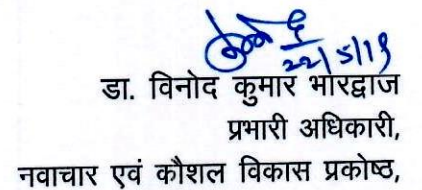 22/5/19
डा. विनोद कुमार भारद्वाज
प्रभारी अधिकारी,
नवाचार एवं कौशल विकास प्रकोष्ठ,